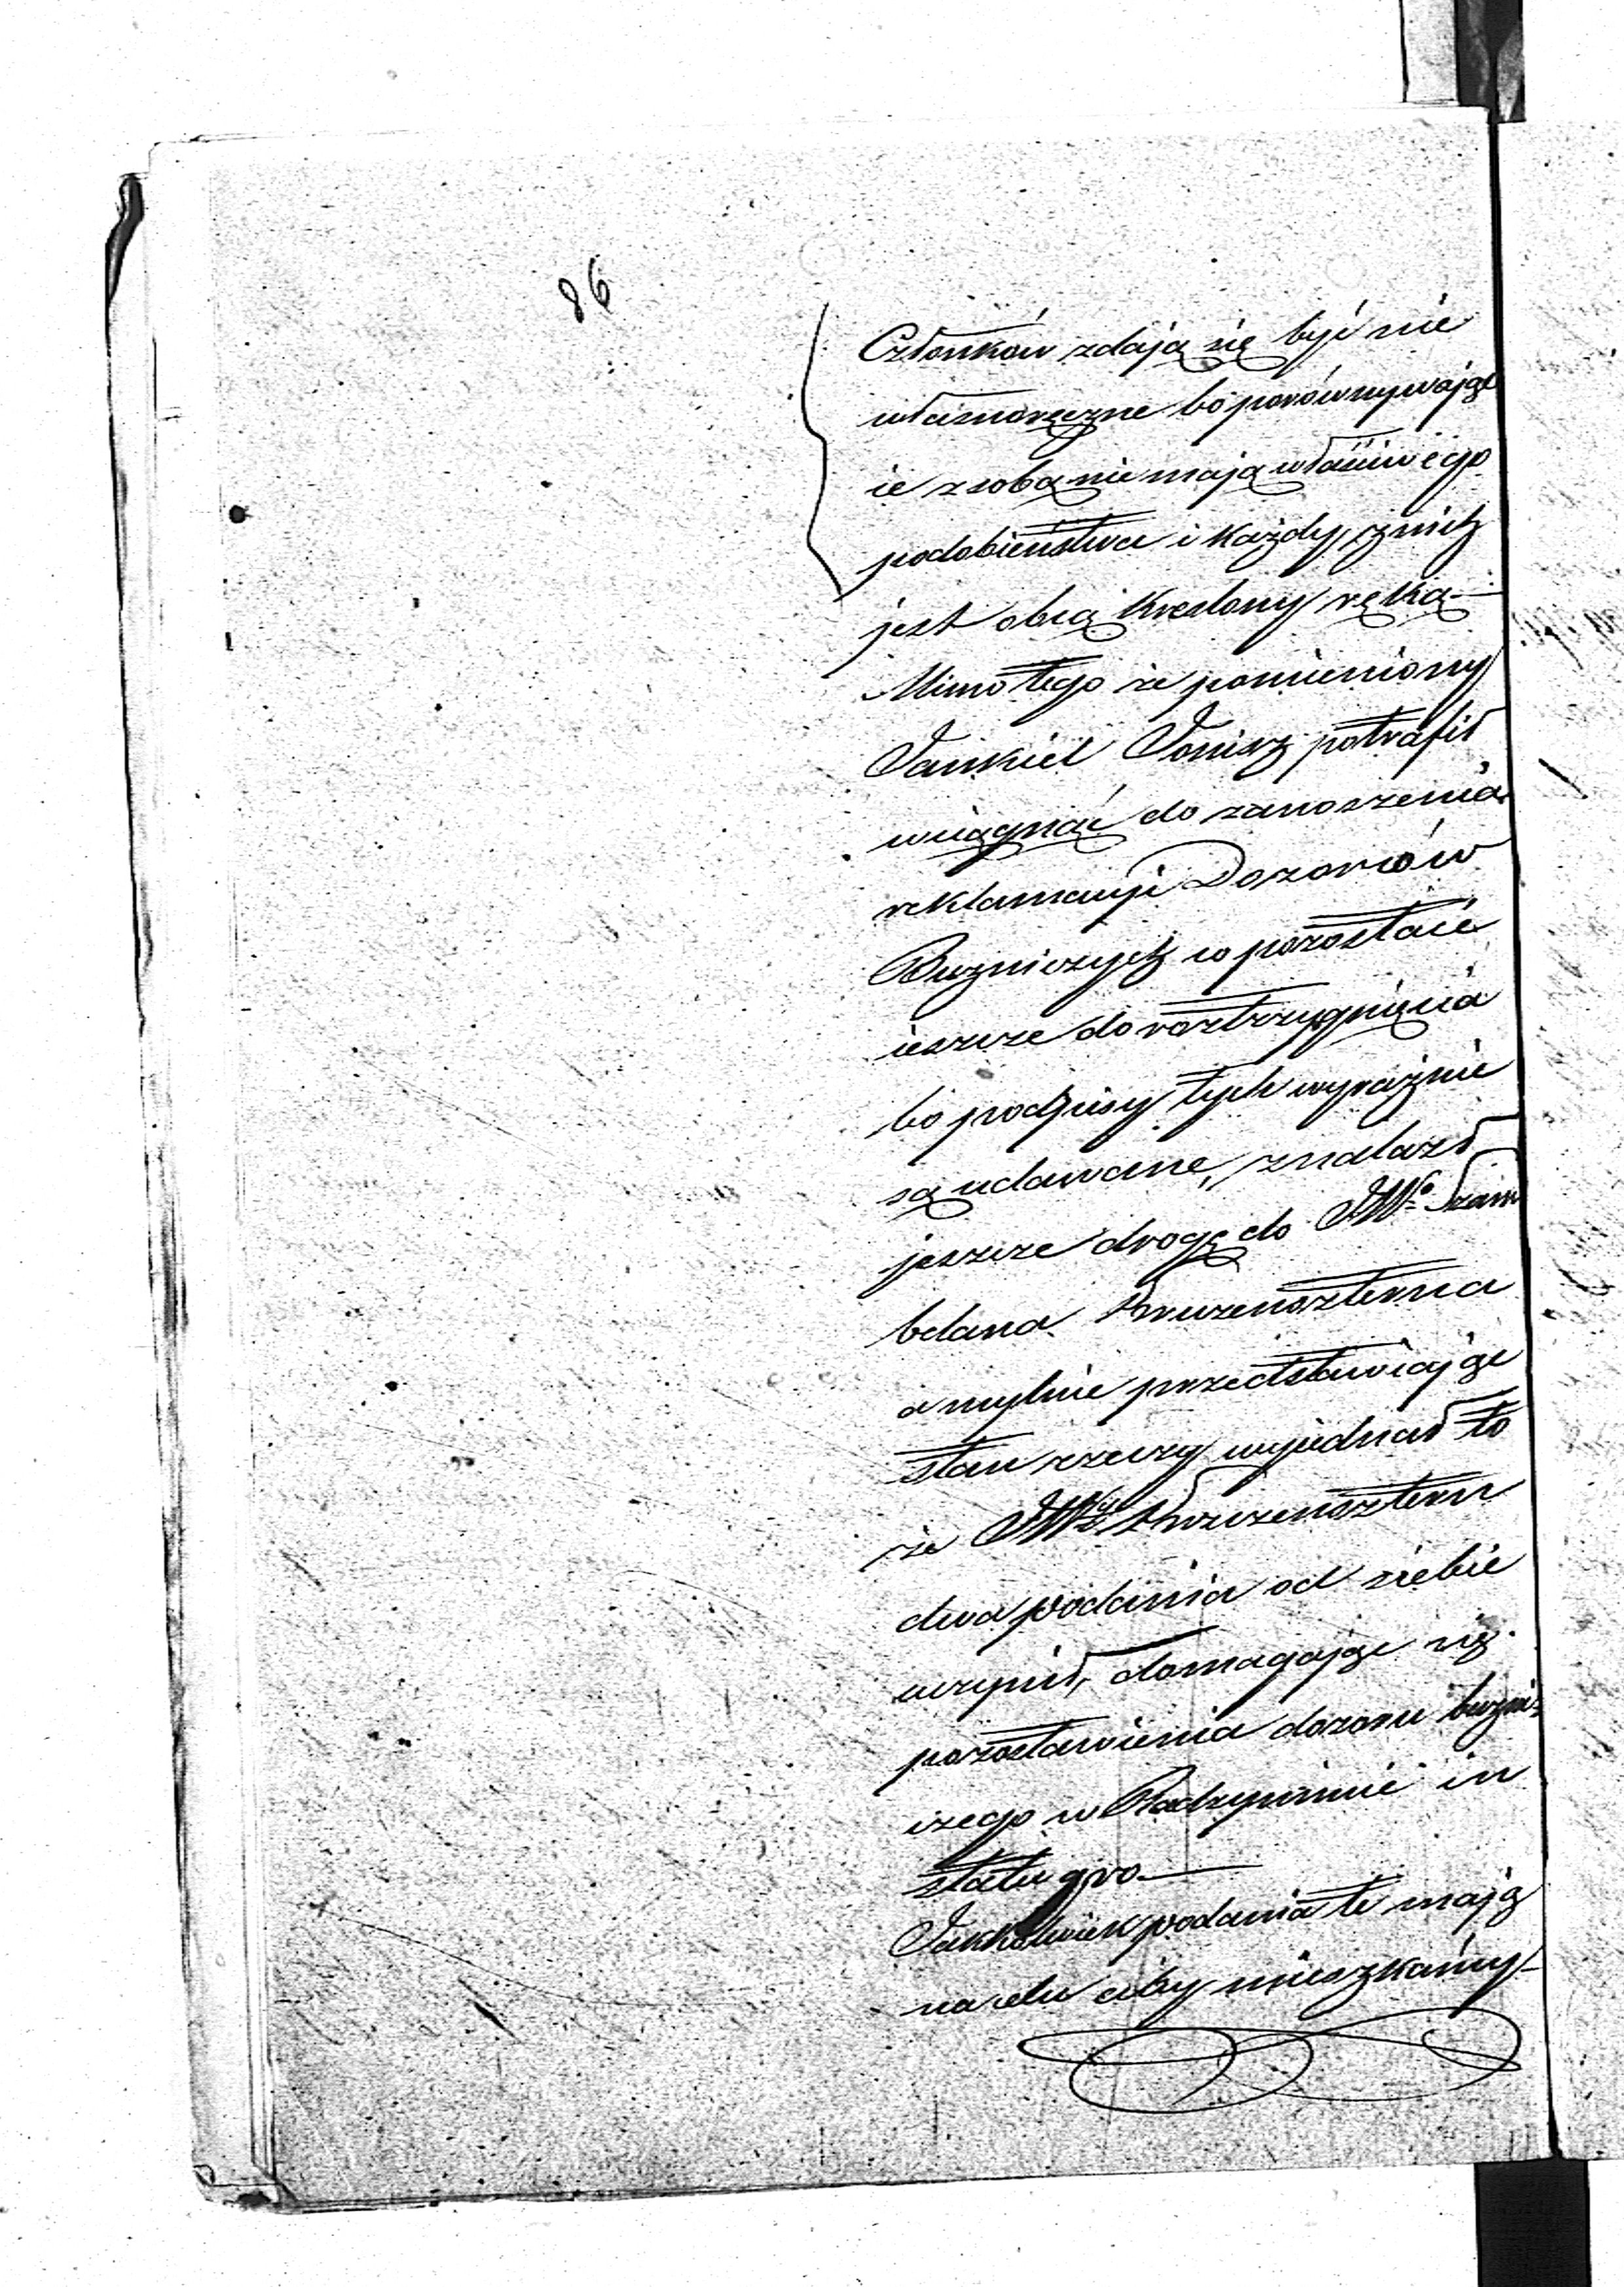 86
Członków zdają się być nie
własnoręczne bo porównywając
ie z sobą nie mają właściwego
podobieństwa i każdy z nich
jest obcą kreslony ręką —
Mimo tego że pomieniony
Jankiel Josisz potrafił
wciągnąć do zanoszenia
reklamacji Dozorców
Bużniczych co pozostaie
ieszcze do rostrzygnięcia
bo podpisy tych wyraźnie
są udawane, znalazł
jeszcze drogę do JWo Szam
belana Kruzensterna
a mylnie przedstawiając
stan rzeczy wyjednał to
że JWy Kruzenstern
dwa podania od siebie
uczynił, domagając się
pozostawienia dozoru bużni-
czego w Radzyminie in
statu quo —
Jakkolwiek podania te mają
na celu aby mieszkańcy